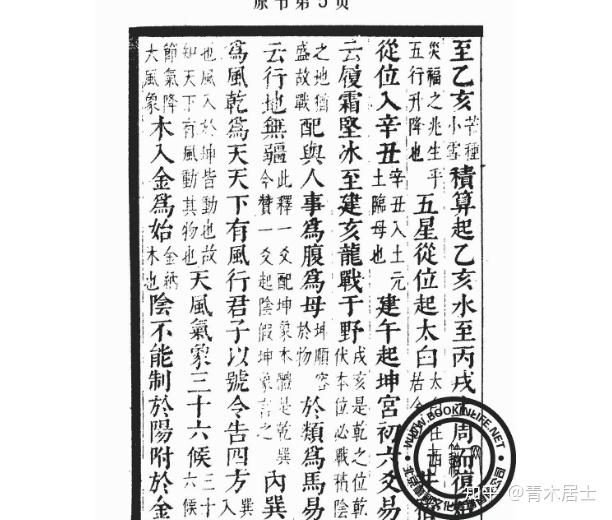 原书第5页
至乙亥芒種小雪積算起乙亥水至丙戌周而復
災福之兆生乎五行升降也五星從位起太白太在西井
從位入辛丑辛丑入土元土臨母也建午起坤宮初六爻易
云履霜堅冰至建亥龍戰于野戌亥是乾之位乾伏本位必戰積陰
之地猶盛故戰配與人事為腹為母坤順容於物於類為馬易
云行地無疆此釋一爻配坤象本體是乾巽今贊一爻起陰假坤象言之內巽
為風乾為天天下有風行君子以號令告四方巽入
也風入於坤皆動也故知天下有風動其物也天風氣象三十六候三十六候
節氣降大風象木入金為始金納木也陰不能制於陽附於金
WWW.BOOKINLIFE.NET
知乎 @青木居士